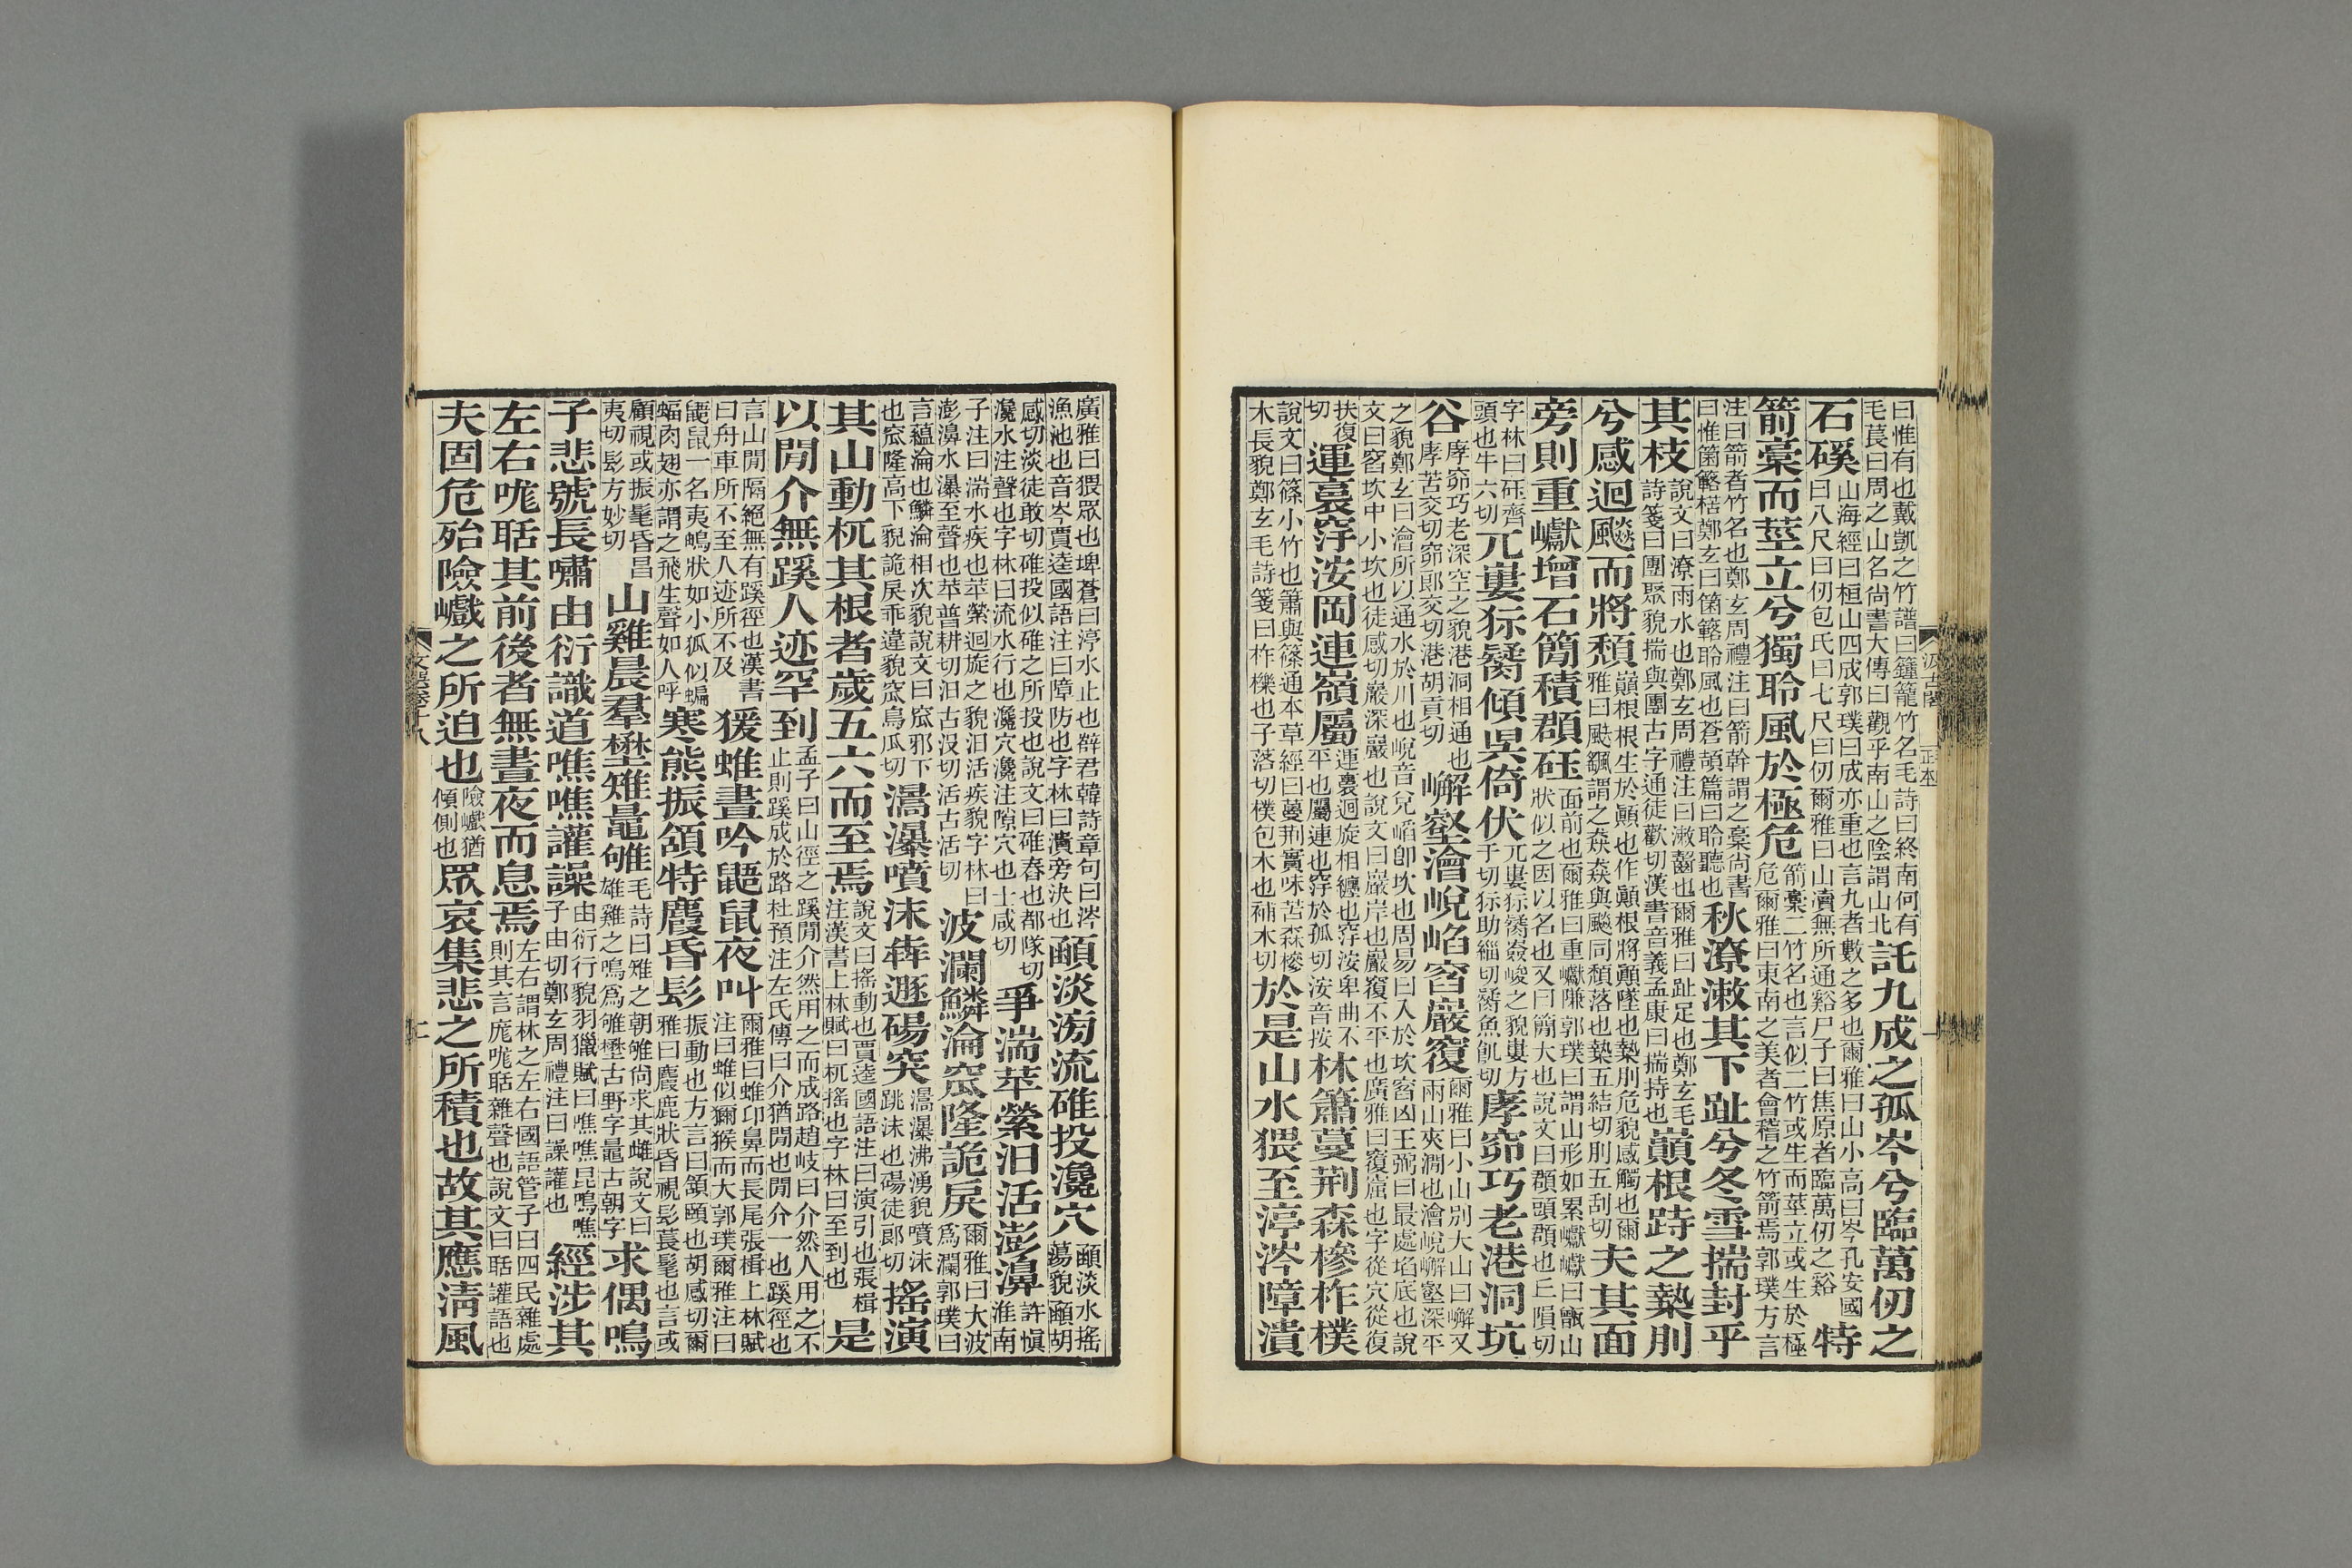 曰惟有也戴凱之竹譜曰鐘籠竹名毛詩曰終南何有
毛萇曰周之山名尚書大傳曰觀乎南山之陰謂山北
託九成之孤岑兮臨萬仞之
石磎
山海經曰桓山四成郭璞曰成亦重也言九者數之多也爾雅曰山小高曰岑孔安國
曰八尺曰仞包氏曰七尺曰仞爾雅曰山瀆無所通谿尸子曰焦原者臨萬仞之谿
特
箭槀而莖立兮獨聆風於極危
箭槀二竹名也言似二竹或生而莖立或生於極
危爾雅曰東南之美者會稽之竹箭焉郭璞方言
注曰箭者竹名也鄭玄周禮注曰箭幹謂之槀尚書
曰惟箘簵楛鄭玄曰箘簵聆風也蒼頡篇曰聆聽也
秋潦漱其下趾兮冬雪揣封乎
其枝
說文曰潦雨水也鄭玄周禮注曰漱齧也爾雅曰趾足也鄭玄毛
詩箋曰團聚貌揣與團古字通徒歡切漢書音義孟康曰揣持也
巔根跱之槷刖
兮感迴飇而將頹
巔根根生於顚也作顚根將顚墜也槷刖危貌感觸也爾
雅曰颰飖謂之猋猋與飇同頹落也槷五結切刖五刮切
夫其面
旁則重巘增石簡積頵砡
面前也爾雅曰重巘隒郭璞曰謂山形如累巘巘曰甑山
狀似之因以名也又曰簡大也說文曰頵頭頵也丘隕切
字林曰砡齊
頭也牛六切
兀嶁狋觺傾倚伏
兀嶁狋觺峻之貌嶁方
于切狋助緇切觺魚飢切
庨窌巧老港洞坑
谷
庨窌巧老深空之貌港洞相通也
庨苦交切窌郎交切港胡貢切
嶰壑澮峴窞巖覆
爾雅曰小山別大山曰嶰又
兩山夾澗也澮嶰壑深平
之貌鄭玄曰澮所以通水於川也音兌卽坎也周易曰入於坎窞凶王弼曰最處埳底也說
文曰窞坎中小坎也徒感切巖深巖也說文曰巖岸也巖覆不平也廣雅曰覆窟也字從穴從復
扶復
切
運裛窏洝岡連嶺屬
運裛迴旋相纏也窏洝卑曲不
平也屬連也窏於孤切洝音按
林簫蔓荆森槮柞樸
說文曰篠小竹也簫與篠通本草經曰蔓荆實味苦森槮
木長貌鄭玄毛詩箋曰柞櫟也子落切樸包木也補木切
於是山水猥至渟涔障潰
廣雅曰猥眾也埤蒼曰渟水止也薛君韓詩章句曰涔
漁池也音岑賈逵國語注曰障防也字林曰潰旁決也
顄淡滂流碓投瀺穴
顄淡水搖
蕩貌顄胡
感切淡徒敢切碓投似碓之所投也說文曰碓舂也都隊切
瀺水注聲也字林曰流水行也瀺穴瀺注隙穴也士咸切
爭湍苹縈汩活澎濞
許愼
淮南
子注曰湍水疾也苹縈迴旋之貌汩活疾貌字林曰
澎濞水瀑至聲也苹普耕切汩古没切活古活切
波瀾鱗淪窊隆詭戾
爾雅曰大波
爲瀾郭璞曰
言蘊淪也鱗淪相次貌說文曰窊邪下
也窊隆高下貌詭戾乖違貌窊烏瓜切
瀥瀑噴沫犇遯碭突
瀥瀑沸湧貌噴沫
跳沫也碭徒郎切
搖演
其山動杌其根者歲五六而至焉
說文曰搖動也賈逵國語注曰演引也張楫
注漢書上林賦曰杌搖也字林曰至到也
是
以閒介無蹊人迹罕到
孟子曰山徑之蹊閒介然用之而成路趙岐曰介然人用之不
止則蹊成於路杜預注左氏傳曰介猶閒也閒介一也蹊徑也
言山閒隔絕無有蹊徑也漢書
曰舟車所不至人迹所不及
猨蜼晝吟鼯鼠夜叫
爾雅曰蜼卬鼻而長尾張楫上林賦
注曰蜼似獼猴而大郭璞爾雅注曰
鼯鼠一名夷鳴狀如小狐似蝙
蝠肉翅亦謂之飛生聲如人呼
寒熊振頷特麚昏髟
振動也方言曰頷頤也胡感切爾
雅曰麚鹿狀昏視髟長髦也言或
顧視或振髦昏昌
夷切髟方妙切
山雞晨羣壄雉鼂雊
毛詩曰雉之朝雊尙求其雌說文曰
雄雞之鳴爲雊壄古野字鼂古朝字
求偶鳴
子悲號長嘯由衍識道噍噍讙譟
由衍行貌羽獵賦曰噍噍昆鳴噍
子由切鄭玄周禮注曰譟讙也
經涉其
左右哤聒其前後者無晝夜而息焉
左右謂林之左右國語管子曰四民雜處
則其言哤哤聒雜聲也說文曰聒讙語也
夫固危殆險巇之所迫也
險巇猶
傾側也
眾哀集悲之所積也故其應淸風
汲古閣
正本
文選卷十八